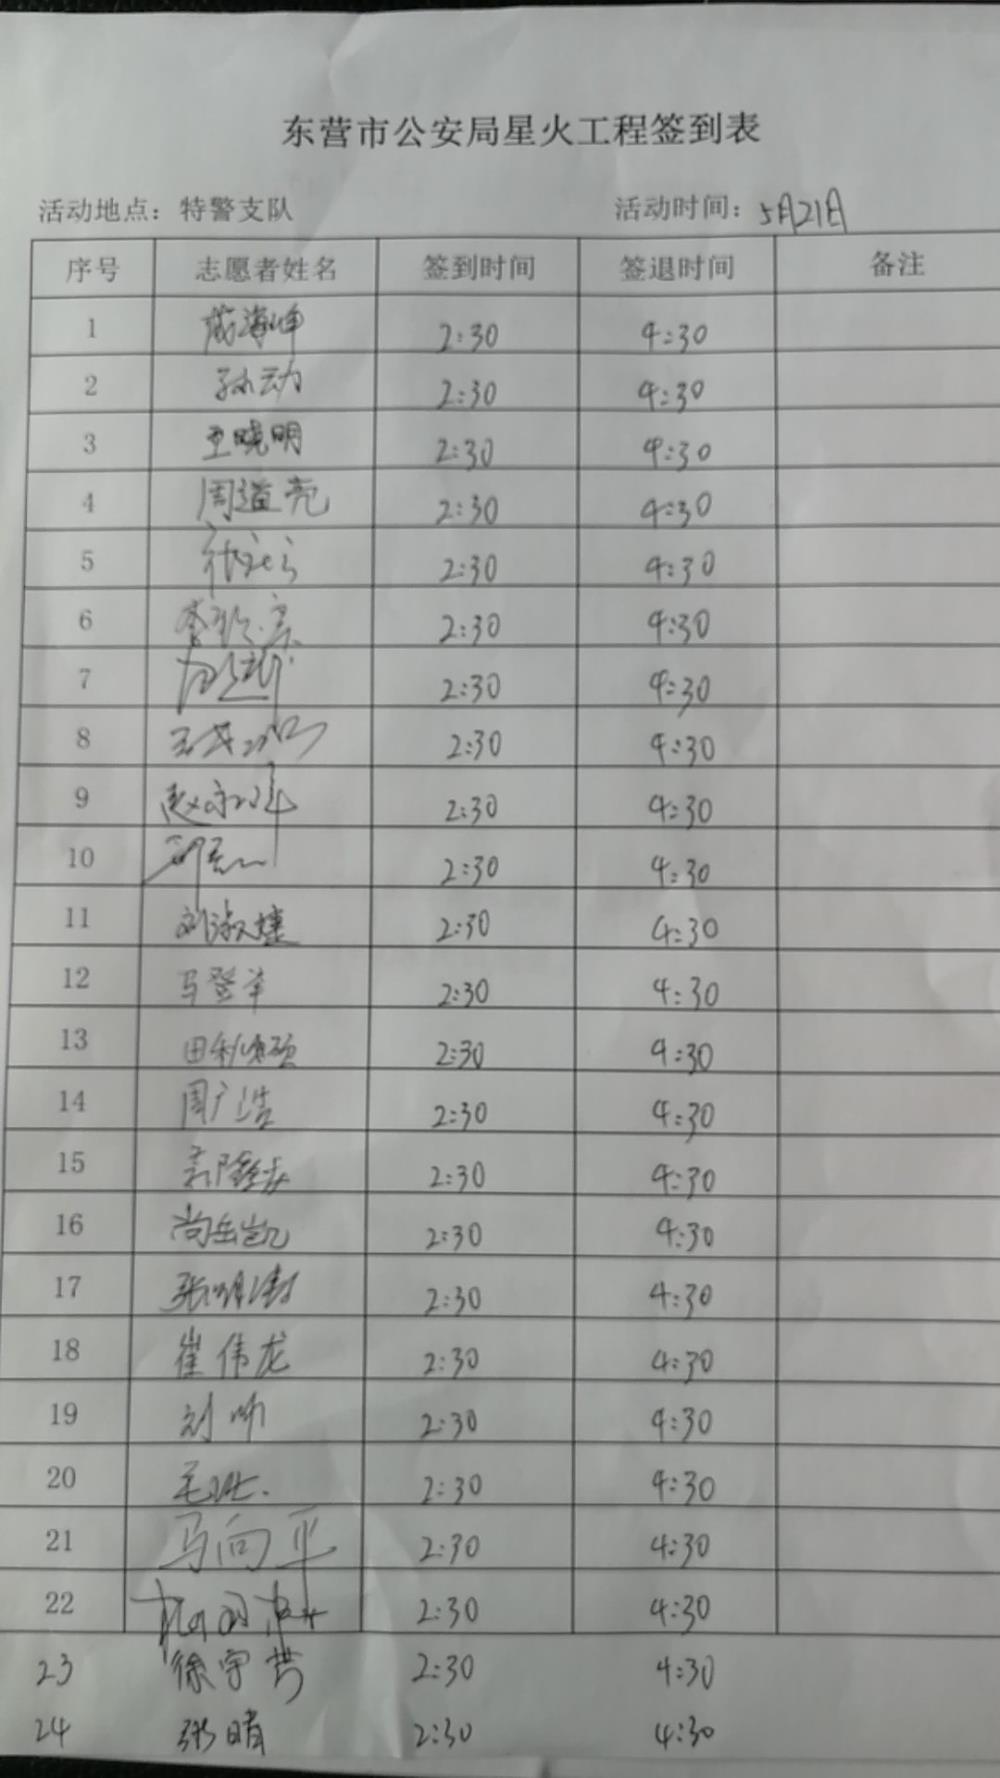 东营市公安局星火工程签到表
活动地点：特警支队 活动时间：5月21日
序号 志愿者姓名 签到时间 签退时间 备注
1 2:30 4:30
2 孙动 2:30 4:30
3 王晓明 2:30 4:30
4 周道亮 2:30 4:30
5 2:30 4:30
6 2:30 4:30
7 2:30 4:30
8 2:30 4:30
9 2:30 4:30
10 2:30 4:30
11 2:30 4:30
12 马登羊 2:30 4:30
13 2:30 4:30
14 周广浩 2:30 4:30
15 2:30 4:30
16 尚岳凯 2:30 4:30
17 2:30 4:30
18 崔伟龙 2:30 4:30
19 刘帅 2:30 4:30
20 2:30 4:30
21 马向平 2:30 4:30
22 2:30 4:30
23 2:30 4:30
24 张晴 2:30 4:30